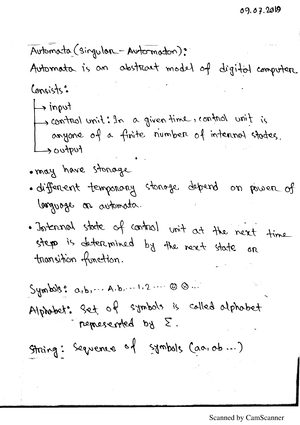 09.07.2019
Automata (Singular - Automaton):
Automata is an abstract model of digital computer.
Consists:
→ input
→ control unit: In a given time, control unit is
anyone of a finite number of internal states.
→ output
• may have storage
• different temporary storage depend on power of
language or automata.
• Internal state of control unit at the next time
step is determined by the next state or
transition function.
Symbols: a,b,... A,b... 1,2 .... ☺ ☹ ...
Alphabet: Set of symbols is called alphabet
represented by Σ.
String: Sequence of symbols (aa, ab ...)
Scanned by CamScanner